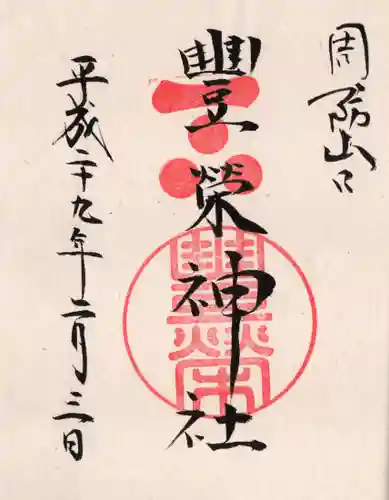 周防山口
豐榮神社
平成二十九年二月三日